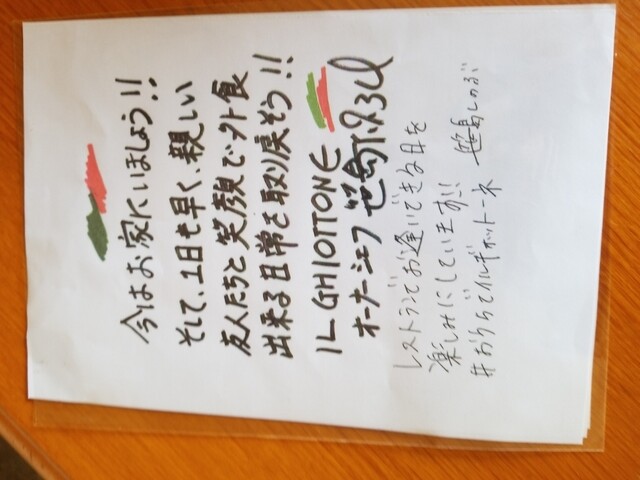 今はお家にいましょう!!
そして、1日も早く、親しい
友人たちと笑顔で外食
出来る日常を取り戻そう!!
IL GHIOTTONE
オーナーシェフ 笹島
レストランでお逢いできる日を
楽しみにしています!!
#おうちでイルギオットーネ 笹島しのぶ